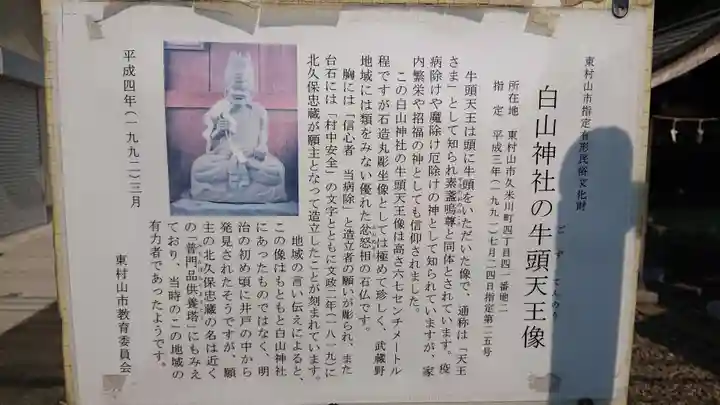 東村山市指定有形民俗文化財
白山神社の牛頭天王像
ごず てんのう
所在地 東村山市久米川町四丁目四一番地二
指定 平成三年(一九九一)七月二四日指定第二五号
牛頭天王は頭に牛頭をいただいた像で、通称は「天王
さま」として知られ素盞嗚尊と同体とされています。疫
病除けや魔除け厄除けの神として知られていますが、家
内繁栄や招福の神としても信仰されました。
この白山神社の牛頭天王像は高さ六七センチメートル
程ですが石造丸彫坐像としては極めて珍しく、武蔵野
地域には類をみない優れた忿怒相の石仏です。
胸には「信心者 当病除」と造立者の願いが彫られ、また
台石には「村中安全」の文字とともに文政二年(一八一九)に
北久保忠蔵が願主となって造立したことが刻まれています。
地域の言い伝えによると、
この像はもともと白山神社
にあったものではなく、明
治の初め頃に井戸の中から
発見されたそうですが、願
主の北久保忠蔵の名は近く
の「普門品供養塔」にもみえ
ており、当時のこの地域の
有力者であったようです。
平成四年(一九九二)三月
東村山市教育委員会